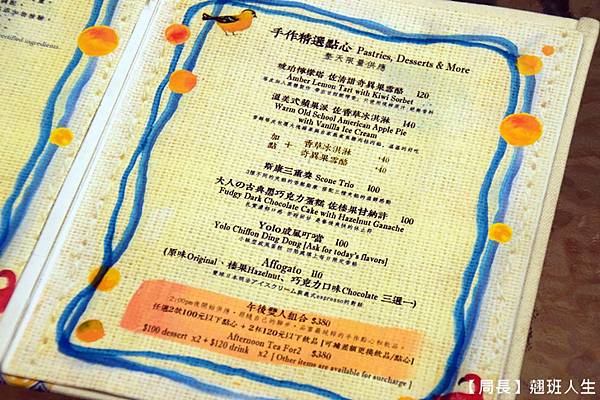 rectified ingredients
手作精選點心 Pastries, Desserts & More
整天限量供應
琥珀檸檬塔 佐清甜奇異果雪酪 120
Amber Lemon Tart with Kiwi Sorbet
溫美式蘋果派 佐香草冰淇淋 140
Warm Old School American Apple Pie
with Vanilla Ice Cream
加 香草冰淇淋 +40
點 奇異果雪酪 +40
斯康三重奏 Scone Trio 100
大人の古典黑巧克力蛋糕 佐榛果甘納許 100
Fudgy Dark Chocolate Cake with Hazelnut Ganache
Yolo戚風叮噹 100
Yolo Chiffon Ding Dong [Ask for today's flavors]
Affogato 110
(原味Original、榛果Hazelnut、巧克力口味Chocolate 三選一)
午後雙人組合 $380
任選2款100元以下點心 + 2杯120元以下飲品 [可補差額更換飲品/點心]
Afternoon Tea For2 $380
$100 dessert x2 + $120 drink x2 [ Other items are available for surcharge ]
【局長】翹班人生